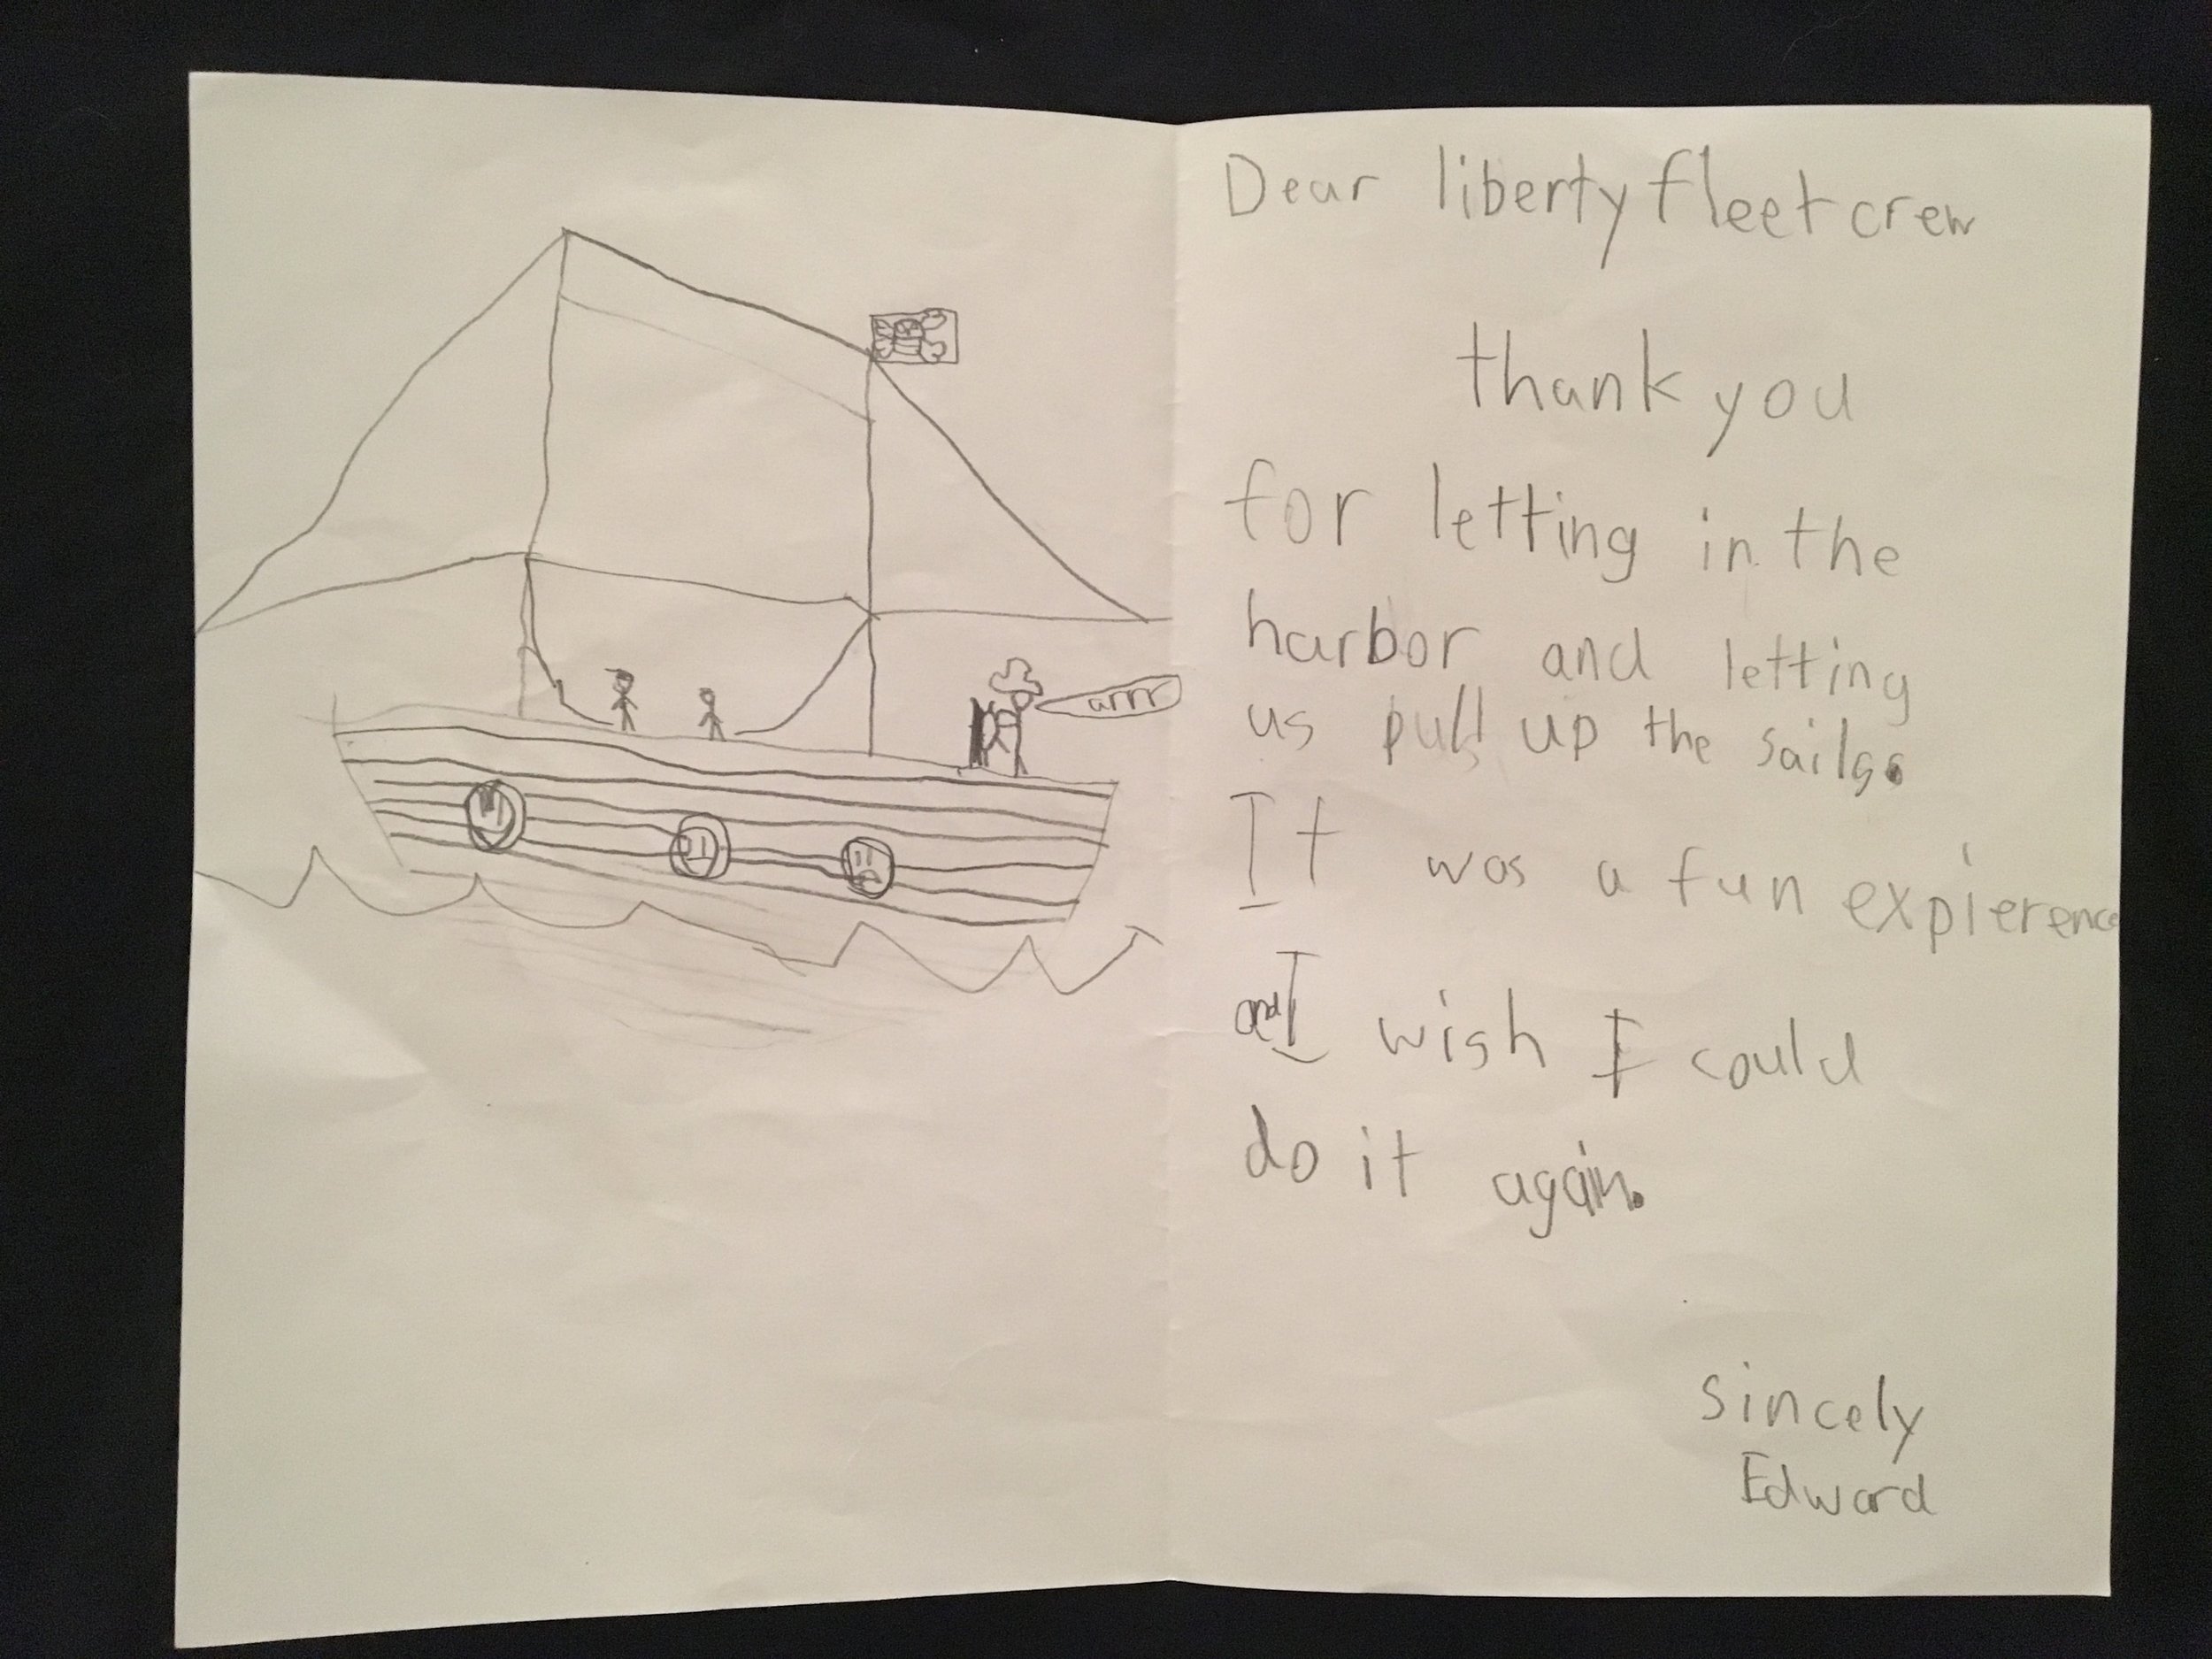 arrr
Dear liberty fleet crew
thank you
for letting in the
harbor and letting
us pull up the sails.
It was a fun expierence
and I wish I could
do it again.
sincely
Edward